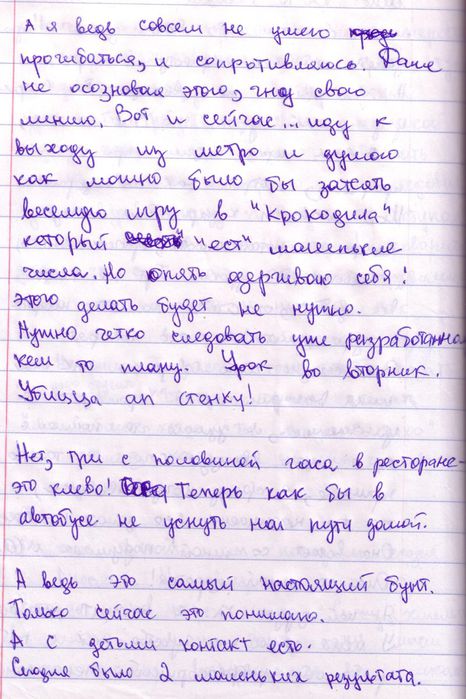 А я ведь совсем не умею
прогибаться, и сопротивляюсь. Даже
не осозновая этого, гну свою
линию. Вот и сейчас... иду к
выходу из метро и думаю
как можно было бы затеять
веселую игру в "Крокодила"
который "ест" маленькие
числа. Но опять одергиваю себя!
этого делать будет не нужно.
Нужно четко следовать уже разработанно
кем то плану. Урок во вторник.
Убицца ап стенку!
Нет, три с половиной часа в ресторане-
это клево! Теперь как бы в
автобусе не уснуть на пути домой.
А ведь это самый настоящий бунт.
Только сейчас это понимаю.
А с детьми контакт есть.
Сегодня было 2 маленьких результата.